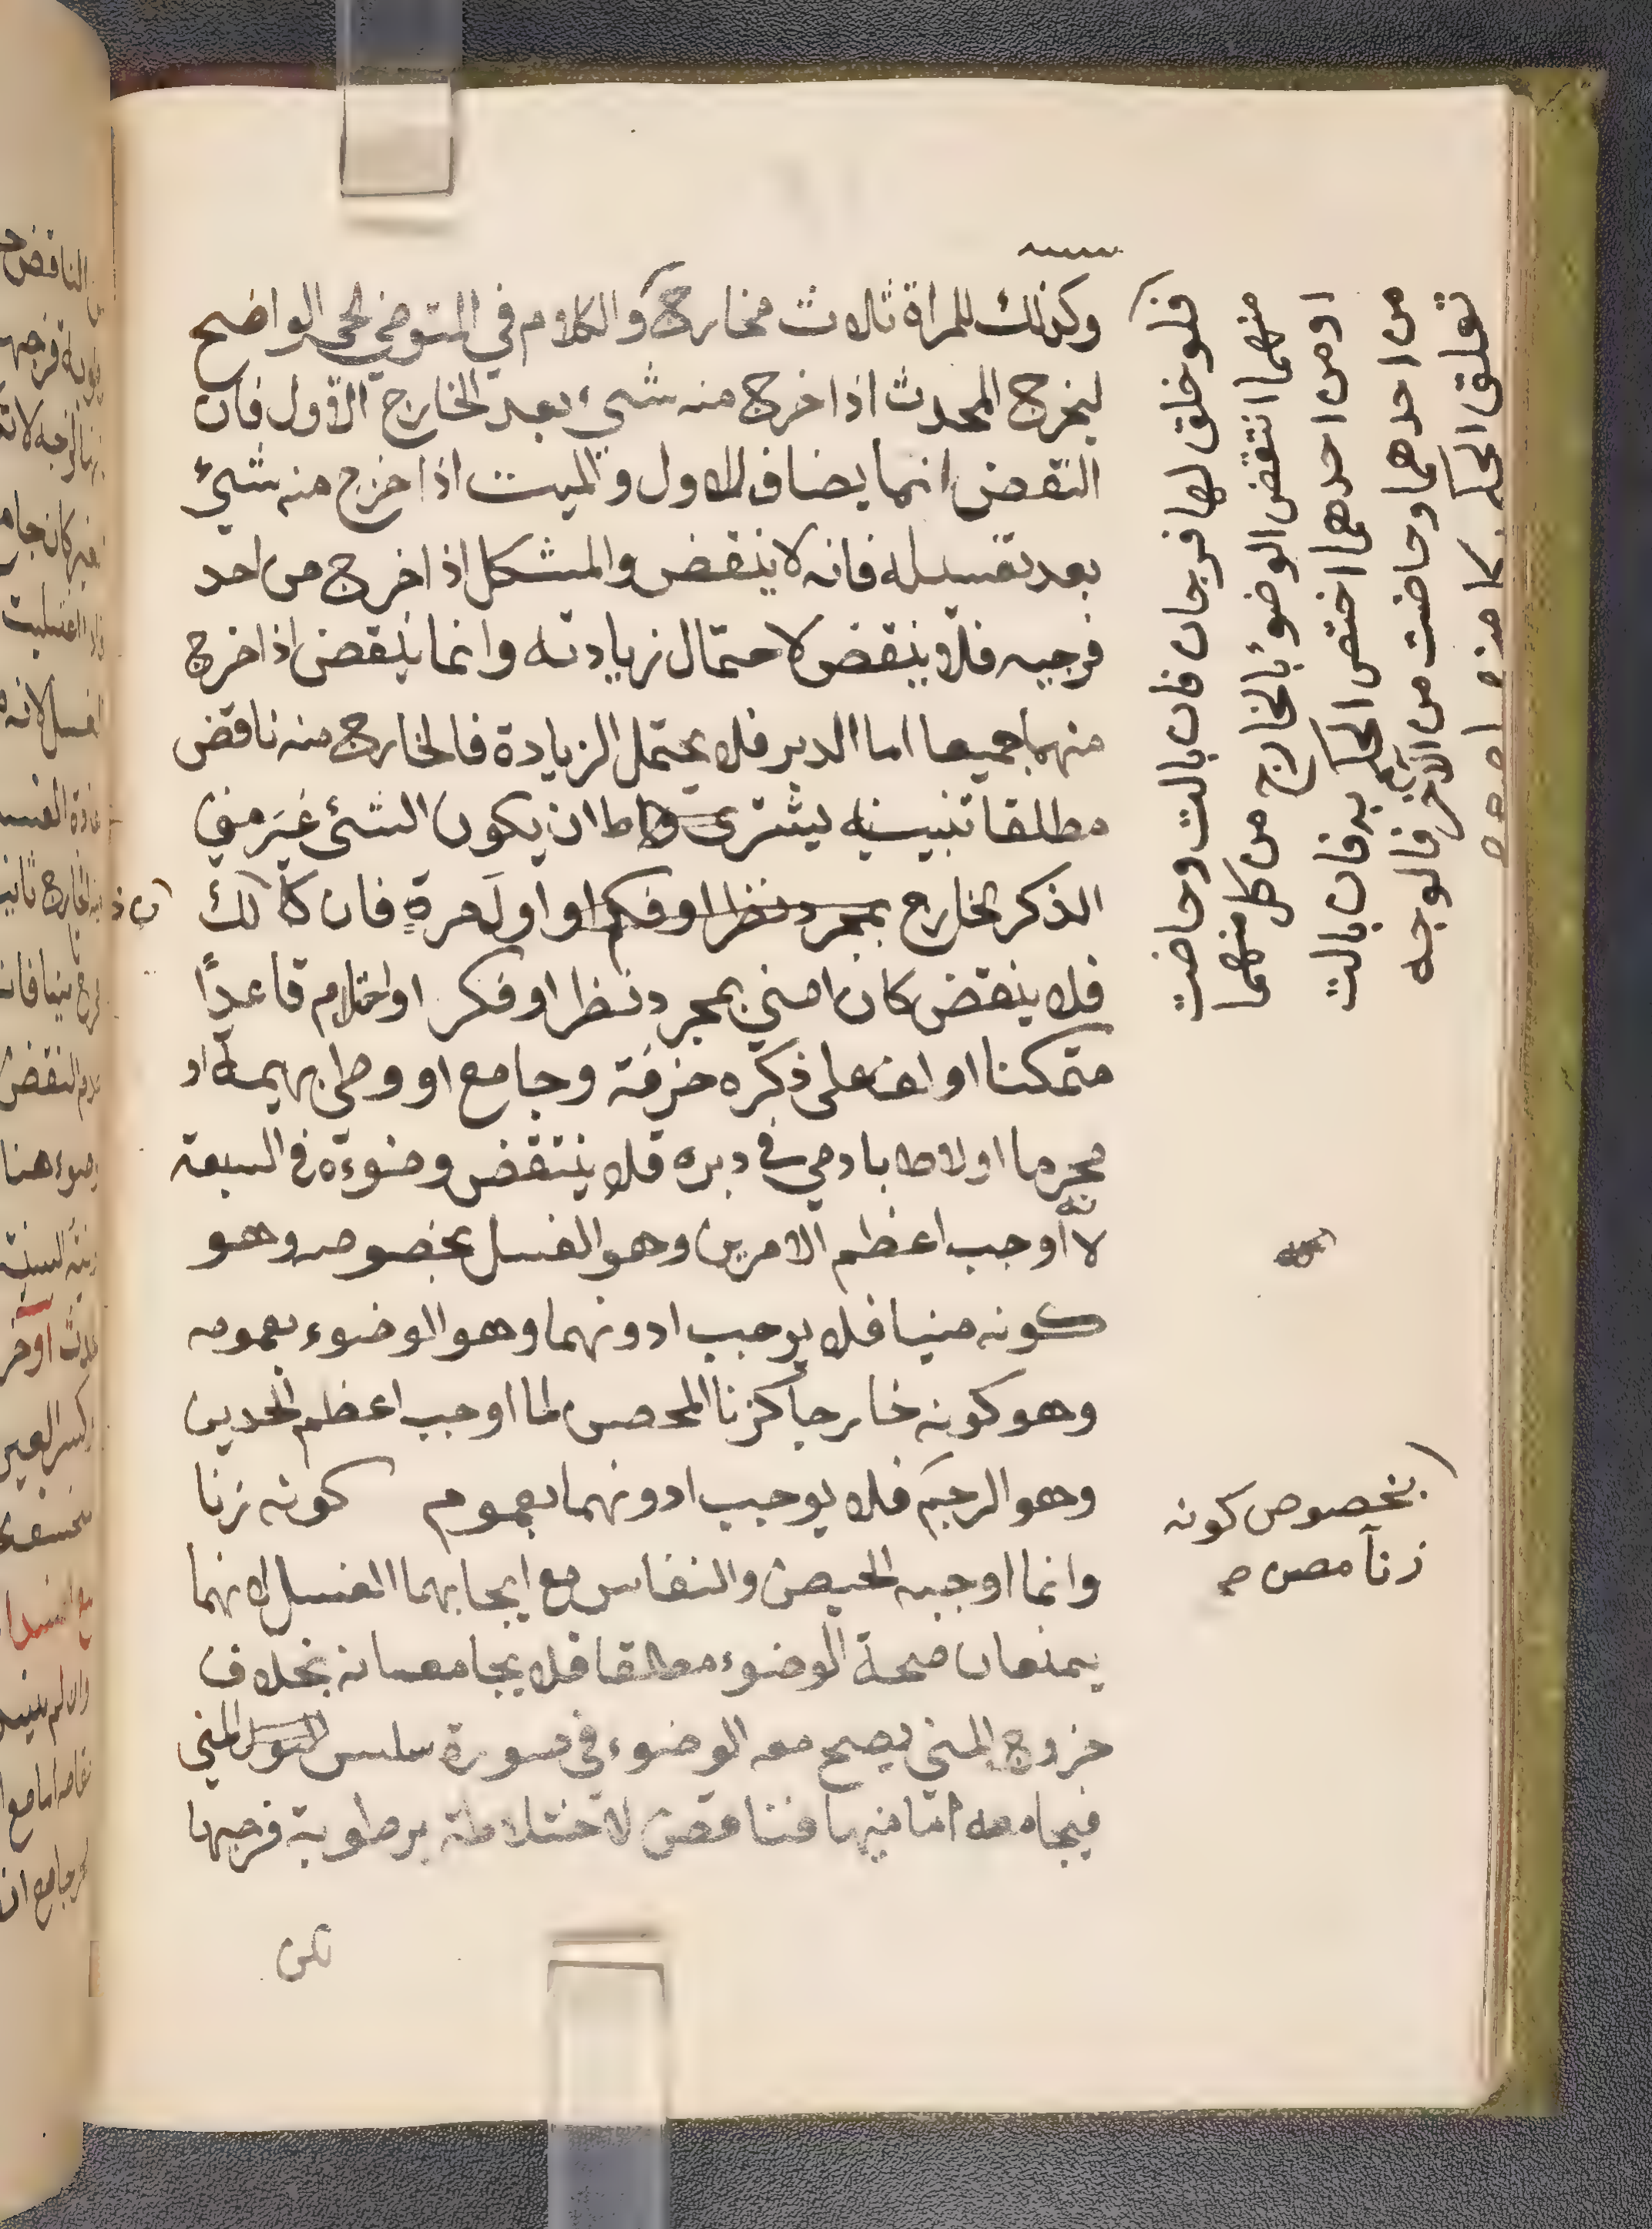 وكذلك للمراة ثلاث مخارج والكلام في المتوضي الحي الواضح
ليخرج المحدث اذا خرج منه شيء بعد الخارج الاول فان
النقض انما يضاف للاول والميت اذا خرج منه شيء
بعد تغسيله فانه لا ينقض والمشكل اذا خرج من احد
فرجيه فلا ينقض لاحتمال زيادته وانما ينقض اذا خرج
منهما جميعا اما الدبر فلا يحتمل الزيادة فالخارج منه ناقض
مطلقا تنبيه يشترى ان يكون الشئ غير مني
الذكر الخارج بمجرد نظر او فكر او اول مرة فان كان كذلك
فلا ينقض كان امني بمجرد نظر او فكر او احتلام قاعدًا
متمكنا او لف على ذكره خرقة وجامع او وطي بهيمة او
محرما او لاط بادمي في دبره فلا ينتقض وضوءه في السبعة
لانه اوجب اعظم الامرين وهو الغسل بخصوصه وهو
كونه منيا فلا يوجب ادونهما وهو الوضوء بعمومه
وهو كونه خارجا كزنا المحصن لما اوجب اعظم الحدين
وهو الرجم فلا يوجب ادونهما بعموم كونه زنا
وانما اوجبه الحيض والنفاس مع ايجابهما الغسل لانهما
يمنعان صحة الوضوء مطلقا فلا يجامعانه بخلاف
خروج المني يصح معه الوضوء في صورة سلس البول المني
فيجامعه اما منيها فناقض لاختلاطه برطوبة فرجها
فلو خلق لها فرجان فان بالت وحاضت
منهما انتقض الوضوء بالخارج من كل منهما
او من احدهما اختص الحكم به فان بالت
من احدهما وحاضت من الاخر فالوجه
تعلق الحكم بكل منهما
بخصوص كونه
زنا محصن صح